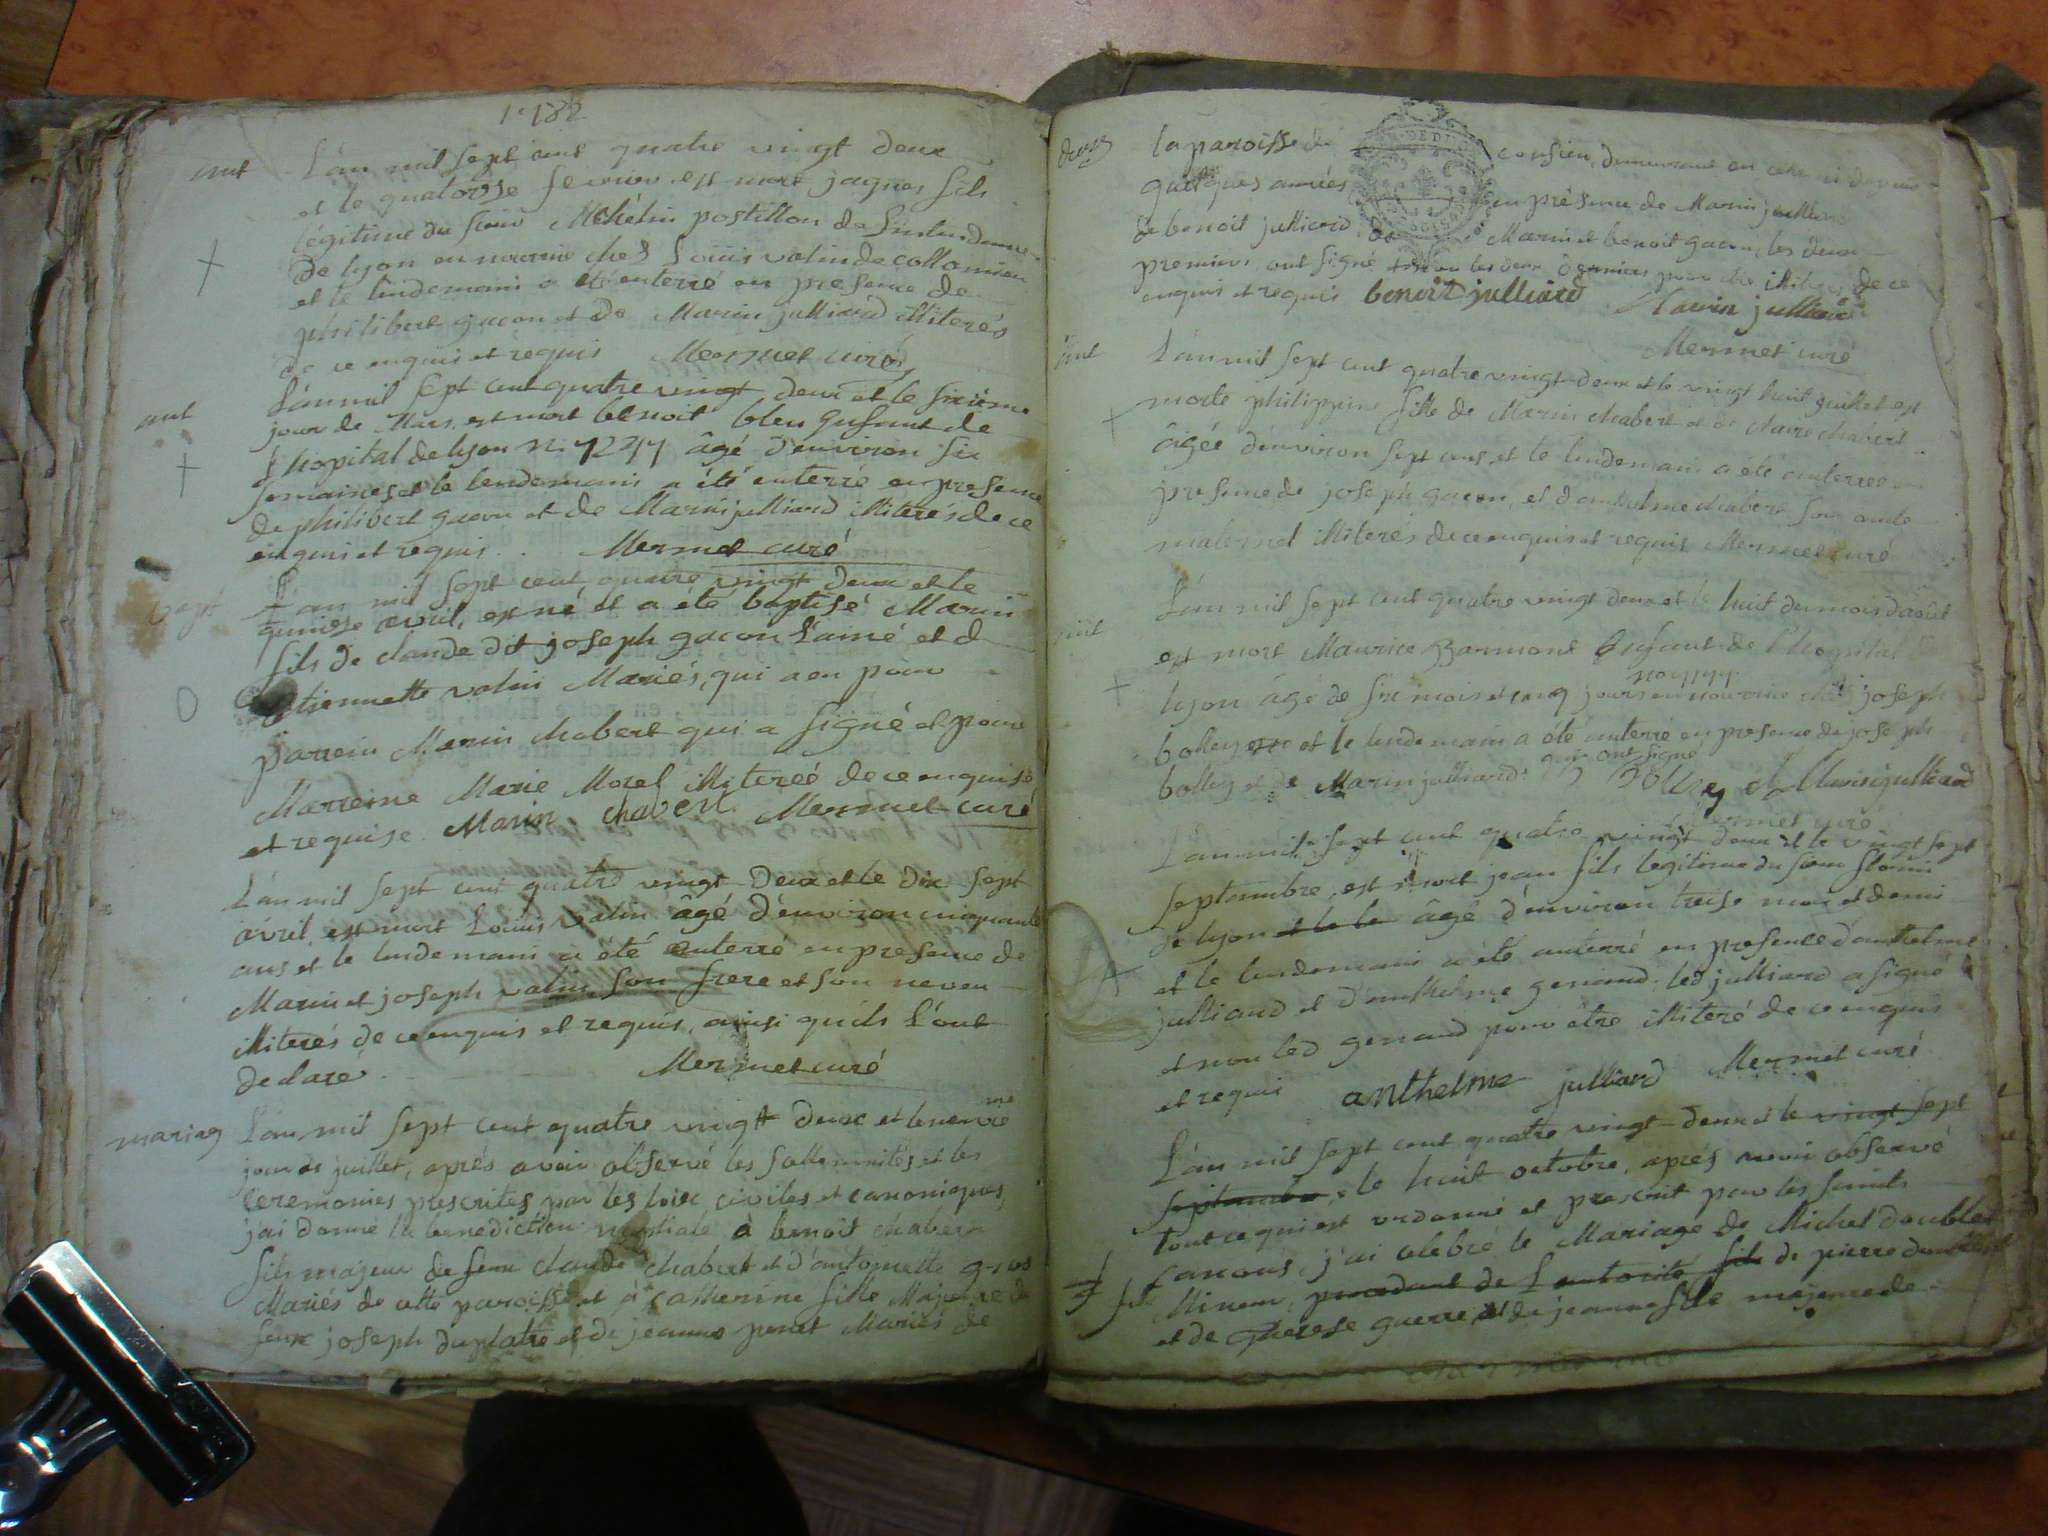 1782
ant
L'an mil sept cent quatre vingt deux
et le quatorze fevrier est mort jaques fils
légitime du sieur Michélin postillon de Lintendance
de lyon en nourrice chés Loüis valin de collomieu
et le lendemain a été enterré en presence de
philibert gacon et de Marin julliard illiterés
de ce enquis et requis Mermet curé
ant
L'an mil sept cent quatre vingt deux et le sixieme
jour de Mars, est mort benoit bleu Enfant de
L'hopital de lyon n. 7277 âgé d'environ six
semaines et le lendemain a été enterré en presence
de philibert gacon et de Marin julliard illiterés de ce
enquis et requis. Mermet curé
bapt
L'an mil sept cent quatre vingt deux et le
quinze avril, est né et a été baptisé Marin
fils de claude dit joseph gacon L'ainé et d
Etiennette valin Mariés, qui a eu pour
parrein Marin chabert qui a signé et pour
Marreine Marie Morel illitereé de ce enquise
et requise. Marin chaver Mermet curé
L'an mil sept cent quatre vingt deux et le dix sept
avril, est mort Loüis valin âgé d'environ cinquante
ans et le lendemain a été enterré en presence de
Marin et joseph valin son frere et son neveu
illiterés de ce enquis et requis, ainsi quils l'ont
declaré. Mermet curé
mariag
L'an mil sept cent quatre vingt deux et le neuvieme
jour de juillet, aprés avoir observé les sollemnités et les
ceremonies prescrites par les loix civiles et canoniques,
j'ai donné la benediction nuptiale à benoit chabert
fils majeur de feu claude chabert et d'antoinette gros
Mariés de cette paroisse et à catherine fille Majeure de
feux joseph duplatre et de jeanne perret Mariés de
la paroisse de consieu, demeurant en celle ci depuis
quelques années en présence de Marin julliard
de benoit julliard de Marin et benoit gacon, les deux
premiers ont signé et non les deux derniers pour etre illiterés de ce
enquis et requis benoit julliard Marin julliard
Mermet curé
ant
L'an mil sept cent quatre vingt deux et le vingt huit juillet est
morte philippine fille de Marin chabert et de claire chabert
âgée d'environ sept ans, et le lendemain a été enterreé en
presence de joseph gacon, et d'anthelme chabert son oncle
maternel illiterés de ce enquis et requis Mermet curé
ant
L'an mil sept cent quatre vingt deux et le huit du mois d'août
est mort Maurice Enfant de l'hopital de
lyon âgé de six mois et cinq jours en nourrice chés joseph
bolley et le lendemain a été enterré en presence de joseph
bolley et de Marin julliard qui ont signé Bolley Marin julliard
Mermet curé
L'an mil sept cent quatre vingt deux et le vingt sept
septembre, est mort jean fils legitime du sieur
de lyon et le le âgé d'environ treise mois et demi
et le lendemain a été enterré en presence d'anthelme
julliard et d'anthelme genand, led julliard a signé
et non led genand pour être illiteré de ce enquis
et requis anthelme julliard Mermet curé
L'an mil sept cent quatre vingt deux et le vingt sept
septembre le huit octobre, aprés avoir observé
tout ce qui est ordonné et prescrit par les saints
canons, j'ai celebré le Mariage de Michel doublet
fils Mineur, procedant de L'autorité fils de pierre doublet
et de Therese guerre et de jeanne fille majeure de